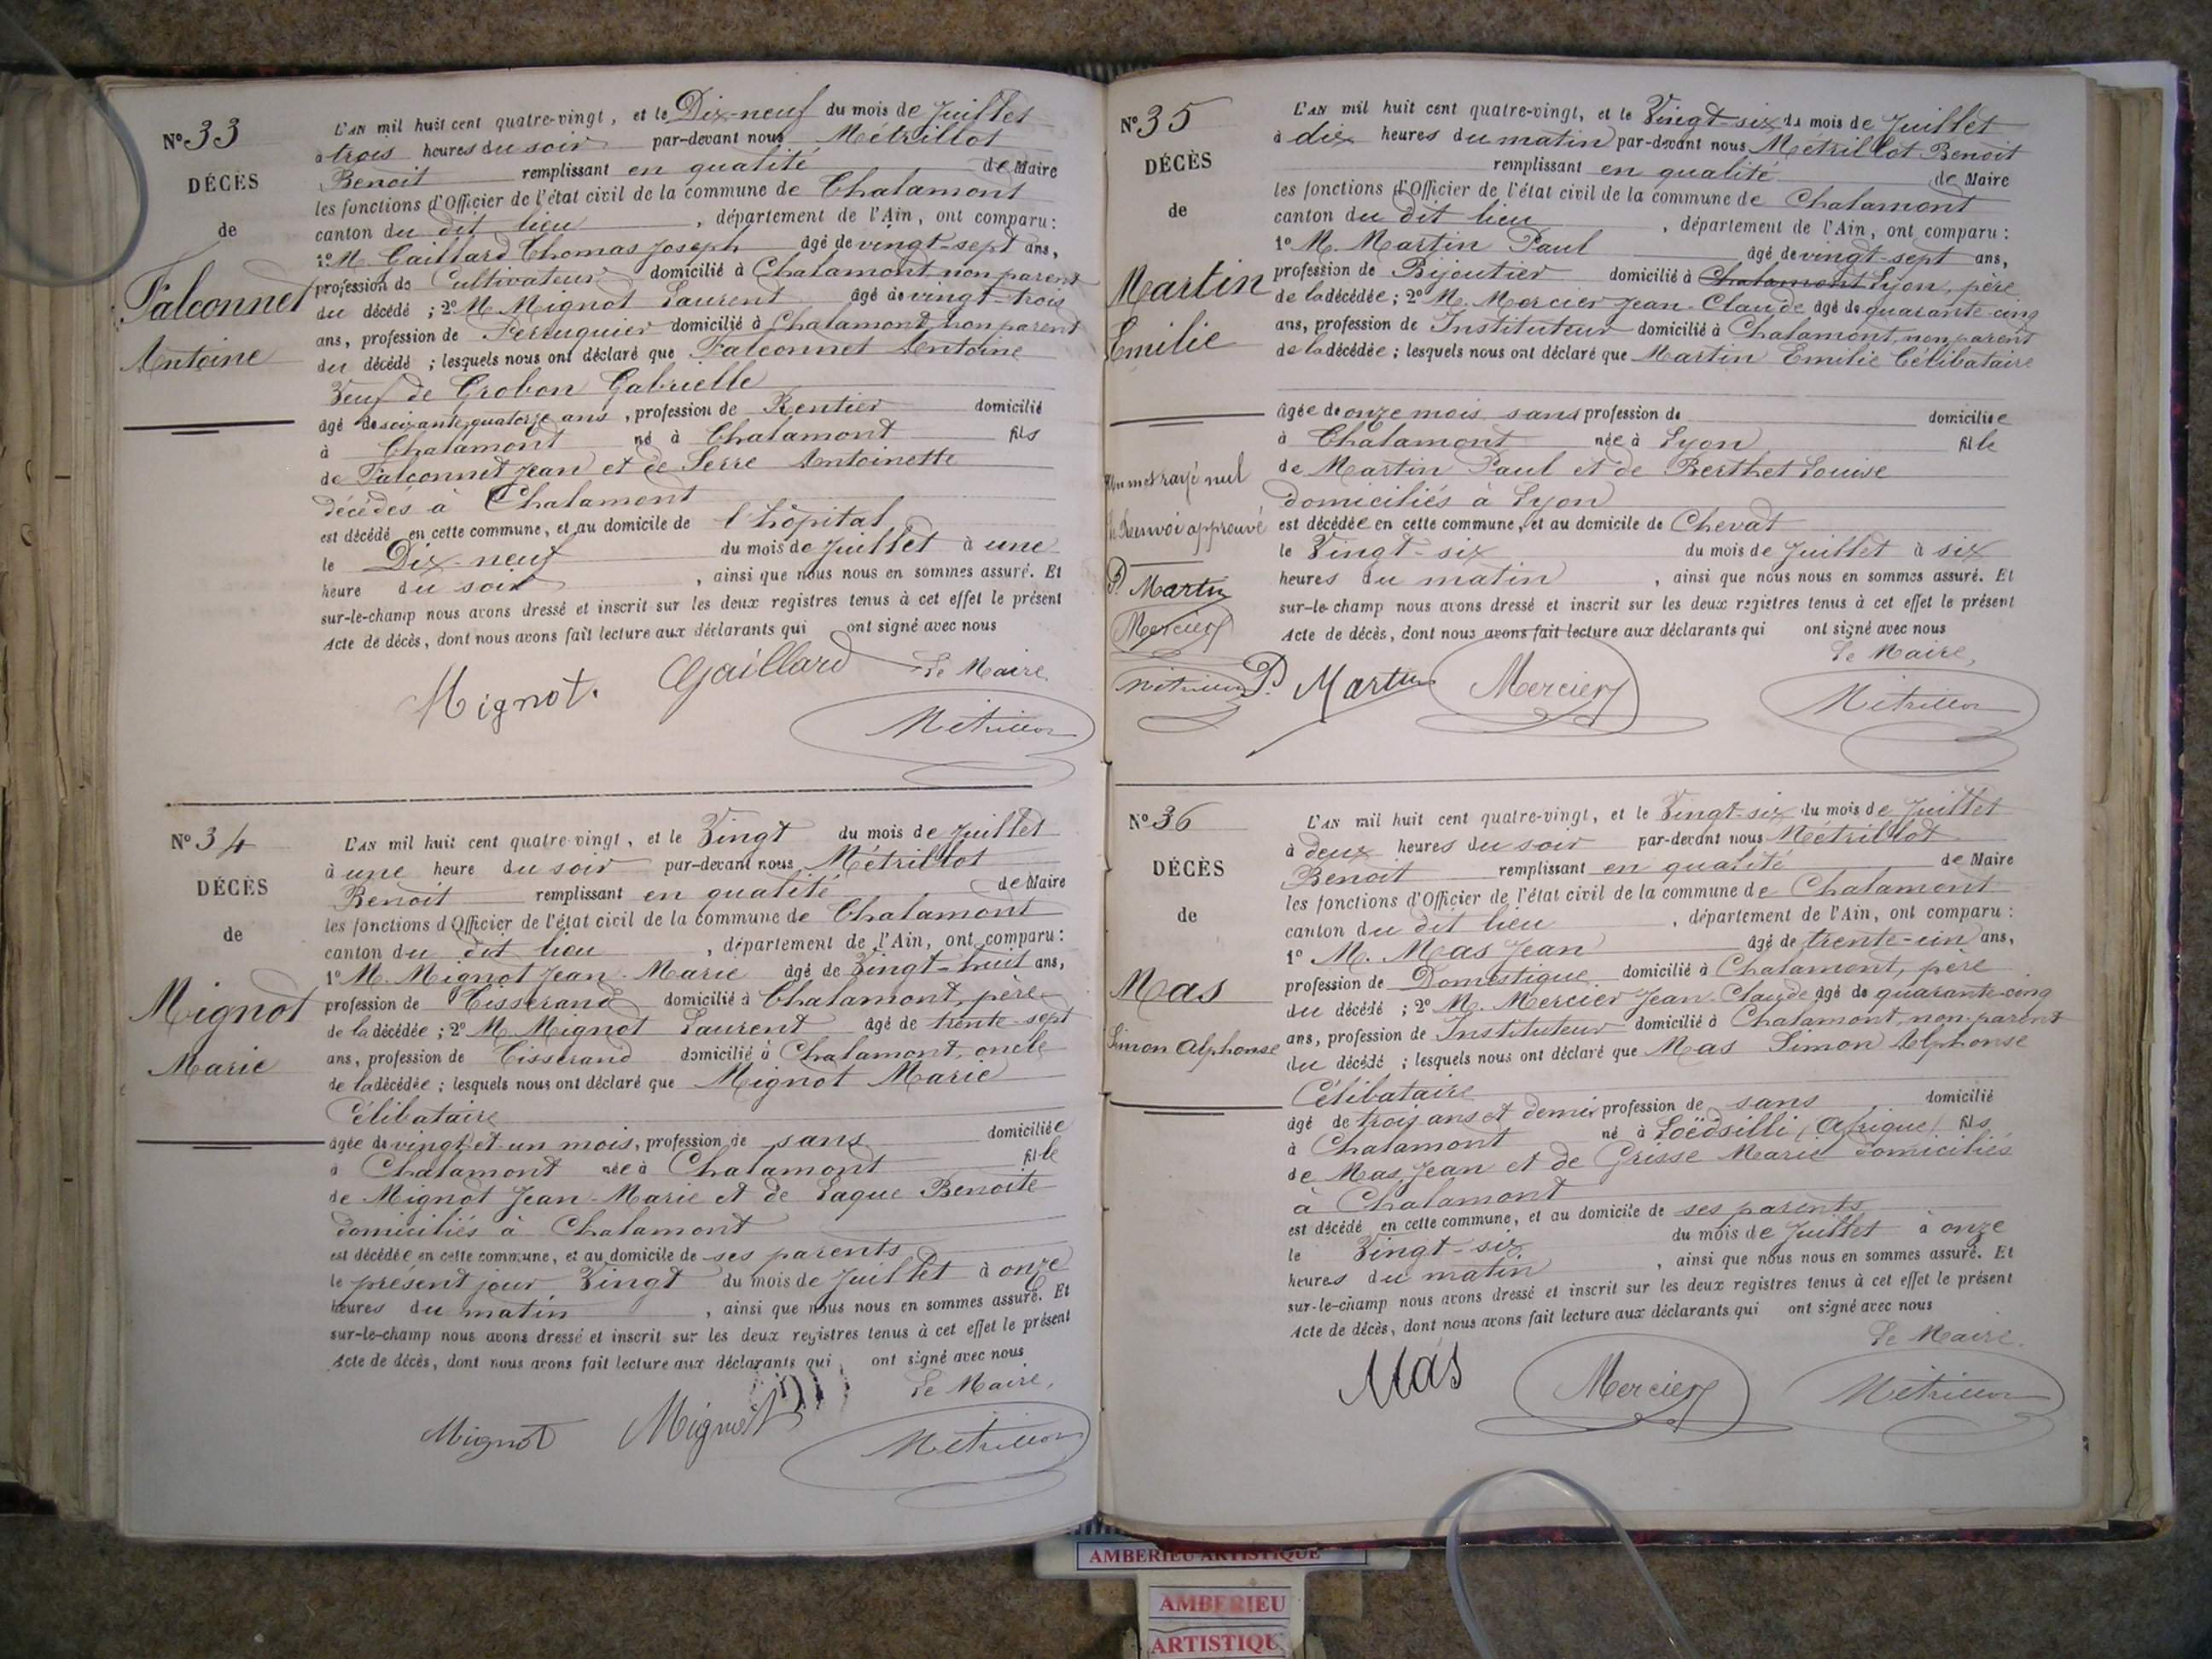 N° 33
DÉCÈS
de
Falconnet
Antoine
L'AN mil huit cent quatre-vingt, et le Dix-neuf du mois de Juillet
à trois heures du soir par-devant nous Métrillot
Benoit remplissant en qualité de Maire
les fonctions d'Officier de l'état civil de la commune de Chalamont
canton du dit lieu, département de l'Ain, ont comparu:
1° M. Gaillard Thomas Joseph âgé de vingt-sept ans,
profession de Cultivateur domicilié à Chalamont, non parent
du décédé; 2° M. Mignot Laurent âgé de vingt-trois
ans, profession de Perruquier domicilié à Chalamont, non parent
du décédé; lesquels nous ont déclaré que Falconnet Antoine
Veuf de Grobon Gabrielle
âgé de soixante quatorze ans, profession de Rentier domicilié
à Chalamont né à Chalamont fils
de Falconnet Jean et de Serre Antoinette
décédés à Chalamont
est décédé en cette commune, et au domicile de l'hôpital
le Dix-neuf du mois de Juillet à une
heure du soir, ainsi que nous nous en sommes assuré. Et
sur-le-champ nous avons dressé et inscrit sur les deux registres tenus à cet effet le présent
Acte de décès, dont nous avons fait lecture aux déclarants qui ont signé avec nous
Mignot. Gaillard Le Maire,
Métrillot
N° 34
DÉCÈS
de
Mignot
Marie
L'AN mil huit cent quatre-vingt, et le Vingt du mois de Juillet
à une heure du soir par-devant nous Métrillot
Benoit remplissant en qualité de Maire
les fonctions d'Officier de l'état civil de la commune de Chalamont
canton du dit lieu, département de l'Ain, ont comparu:
1° M. Mignot Jean-Marie âgé de Vingt-huit ans,
profession de Tisserand domicilié à Chalamont, père
de la décédée; 2° M. Mignot Laurent âgé de trente-sept
ans, profession de Tisserand domicilié à Chalamont, oncle
de la décédée; lesquels nous ont déclaré que Mignot Marie
Célibataire
âgée de vingt et un mois, profession de sans domiciliée
à Chalamont née à Chalamont fille
de Mignot Jean-Marie et de Laque Benoite
domiciliés à Chalamont
est décédée en cette commune, et au domicile de ses parents
le présent jour Vingt du mois de Juillet à onze
heures du matin, ainsi que nous nous en sommes assuré. Et
sur-le-champ nous avons dressé et inscrit sur les deux registres tenus à cet effet le présent
Acte de décès, dont nous avons fait lecture aux déclarants qui ont signé avec nous
Le Maire,
Mignot Mignot Métrillot
N° 35
DÉCÈS
de
Martin
Emilie
Un mot rayé nul
Renvoi approuvé
P. Martin
Mercier
Métrillot
L'AN mil huit cent quatre-vingt, et le Vingt-six du mois de Juillet
à dix heures du matin par-devant nous Métrillot Benoit
remplissant en qualité de Maire
les fonctions d'Officier de l'état civil de la commune de Chalamont
canton du dit lieu, département de l'Ain, ont comparu:
1° M. Martin Paul âgé de vingt-sept ans,
profession de Bijoutier domicilié à Chalamont Lyon, père
de la décédée; 2° M. Mercier Jean-Claude âgé de quarante-cinq
ans, profession de Instituteur domicilié à Chalamont, non parent
de la décédée; lesquels nous ont déclaré que Martin Emilie Célibataire
âgée de onze mois sans profession de domiciliée
à Chalamont née à Lyon fille
de Martin Paul et de Berthet Louise
domiciliés à Lyon
est décédée en cette commune, et au domicile de Chevat
le Vingt-six du mois de Juillet à six
heures du matin, ainsi que nous nous en sommes assuré. Et
sur-le-champ nous avons dressé et inscrit sur les deux registres tenus à cet effet le présent
Acte de décès, dont nous avons fait lecture aux déclarants qui ont signé avec nous
Le Maire,
P. Martin Mercier Métrillot
N° 36
DÉCÈS
de
Mas
Simon Alphonse
L'AN mil huit cent quatre-vingt, et le Vingt-six du mois de Juillet
à deux heures du soir par-devant nous Métrillot
Benoit remplissant en qualité de Maire
les fonctions d'Officier de l'état civil de la commune de Chalamont
canton du dit lieu, département de l'Ain, ont comparu:
1° M. Mas Jean âgé de trente-un ans,
profession de Domestique domicilié à Chalamont, père
du décédé; 2° M. Mercier Jean-Claude âgé de quarante-cinq
ans, profession de Instituteur domicilié à Chalamont, non-parent
du décédé; lesquels nous ont déclaré que Mas Simon Alphonse
Célibataire
âgé de trois ans et demi profession de sans domicilié
à Chalamont né à Loëdsilli (Afrique) fils
de Mas Jean et de Grisse Marie domiciliés
à Chalamont
est décédé en cette commune, et au domicile de ses parents
le Vingt-six du mois de Juillet à onze
heures du matin, ainsi que nous nous en sommes assuré. Et
sur-le-champ nous avons dressé et inscrit sur les deux registres tenus à cet effet le présent
Acte de décès, dont nous avons fait lecture aux déclarants qui ont signé avec nous
Le Maire,
Mas Mercier Métrillot
AMBERIEU ARTISTIQUE
AMBERIEU
ARTISTIQU